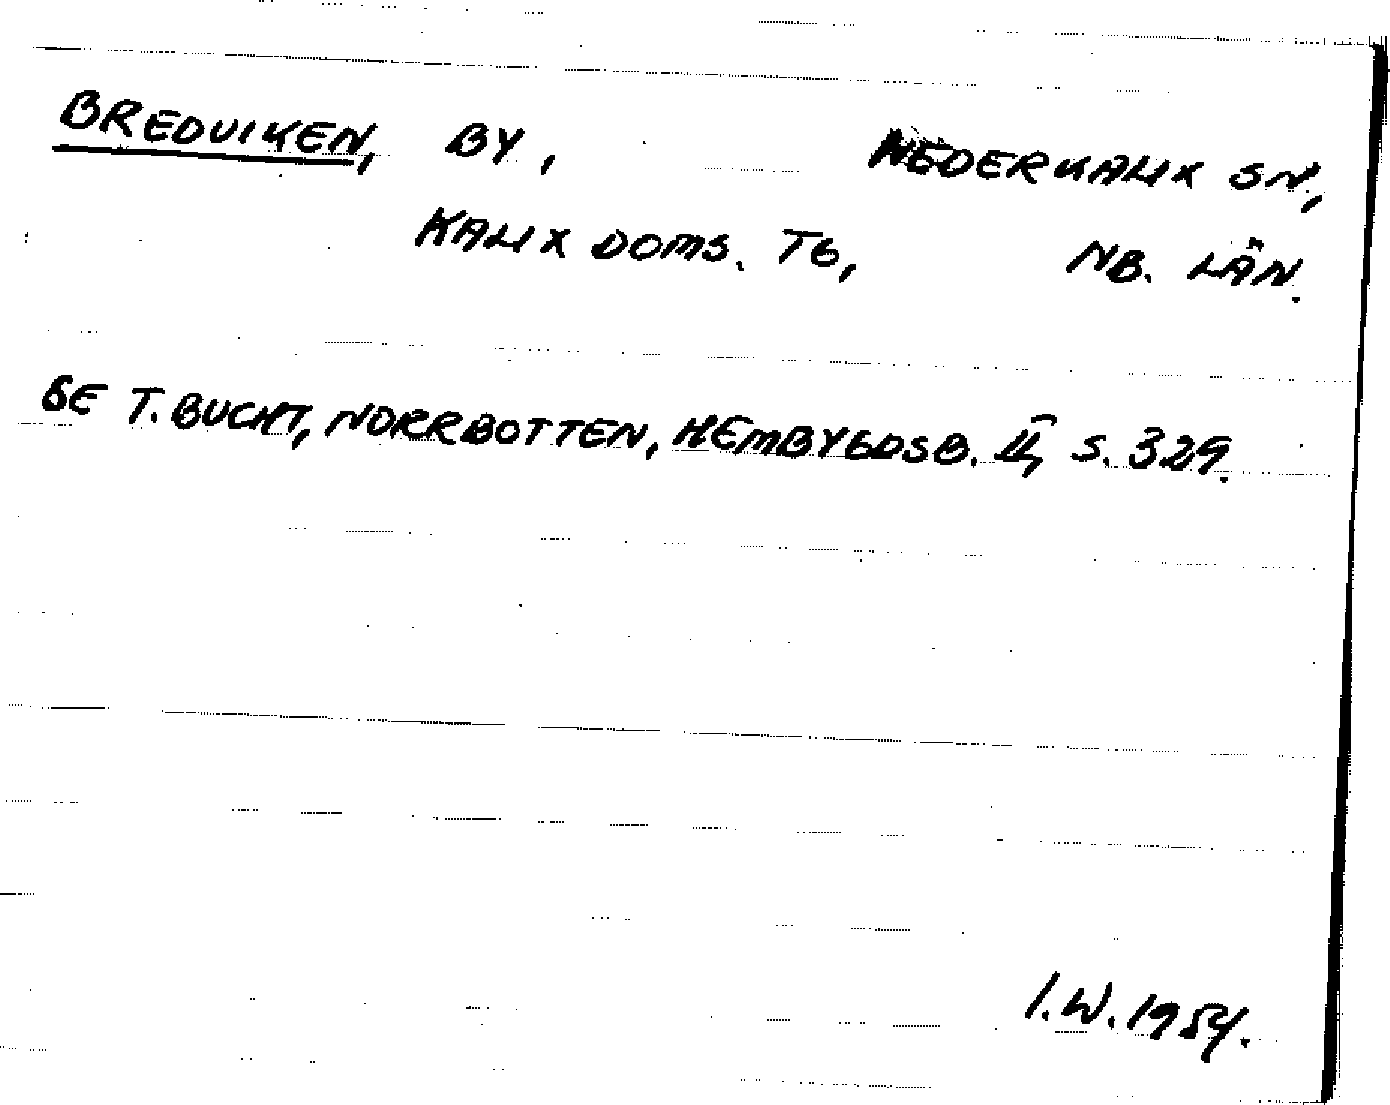 BREDVIKEN, BY, NEDERKALIX SN,
KALIX DOMS. TG, NB. LÄN.
SE T. BUCHT, NORRBOTTEN, HEMBYGDSB. II, S. 329.
I.W. 1954.